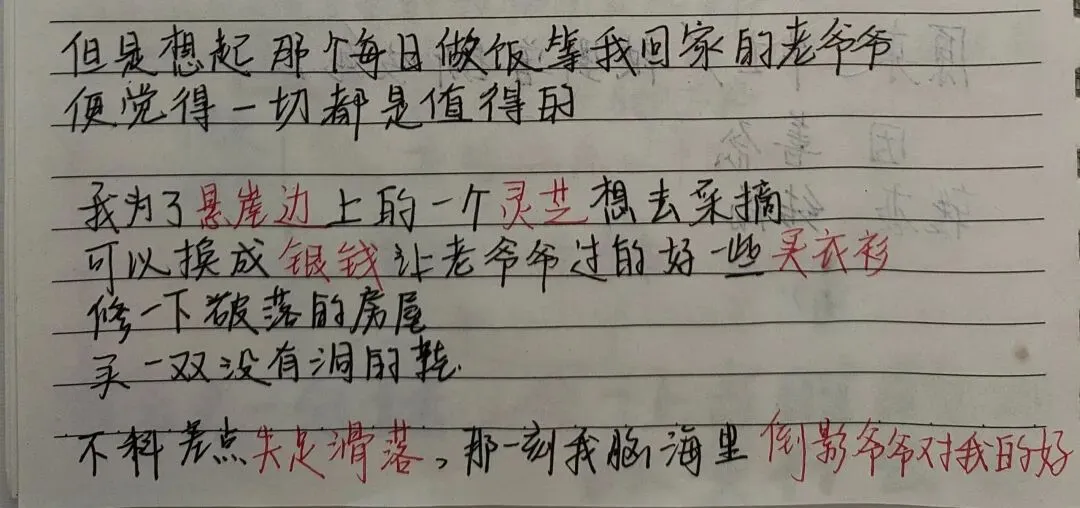 但是想起那个每日做饭等我回家的老爷爷
便觉得一切都是值得的
我为了悬崖边上的一个灵芝想去采摘
可以换成银钱让老爷爷过的好一些买衣衫
修一下破落的房屋
买一双没有洞的鞋
不料差点失足滑落,那一刻我脑海里倒影爷爷对我的好